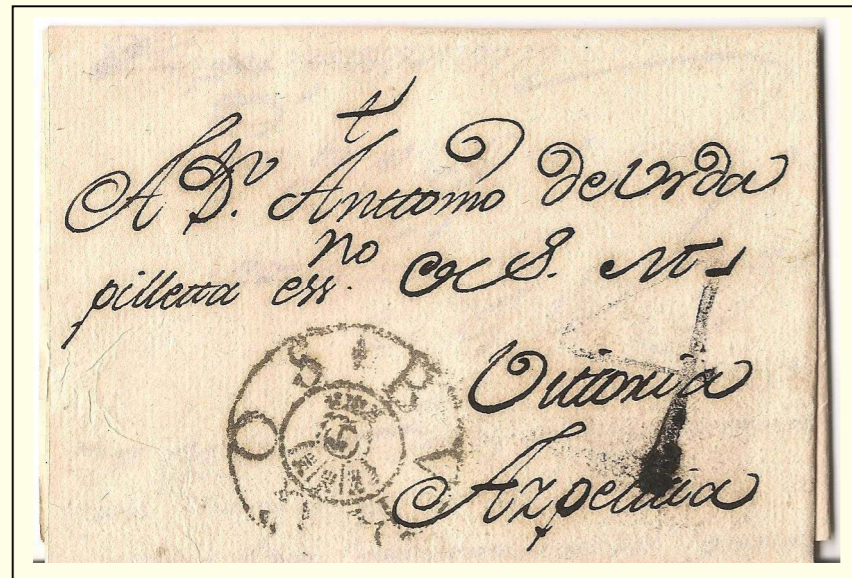 A Dn. Anttonio de Urda
pilletta essno. de S. M.
Vittoria
Azpeitia
4